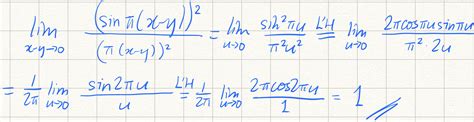 lim x-y→0 (sin π(x-y))² / (π(x-y))² = lim u→0 sin²πu / π²u² L'H= lim u→0 2πcosπu sinπu / π²·2u
= 1/2π lim u→0 sin2πu / u L'H= 1/2π lim u→0 2πcos2πu / 1 = 1